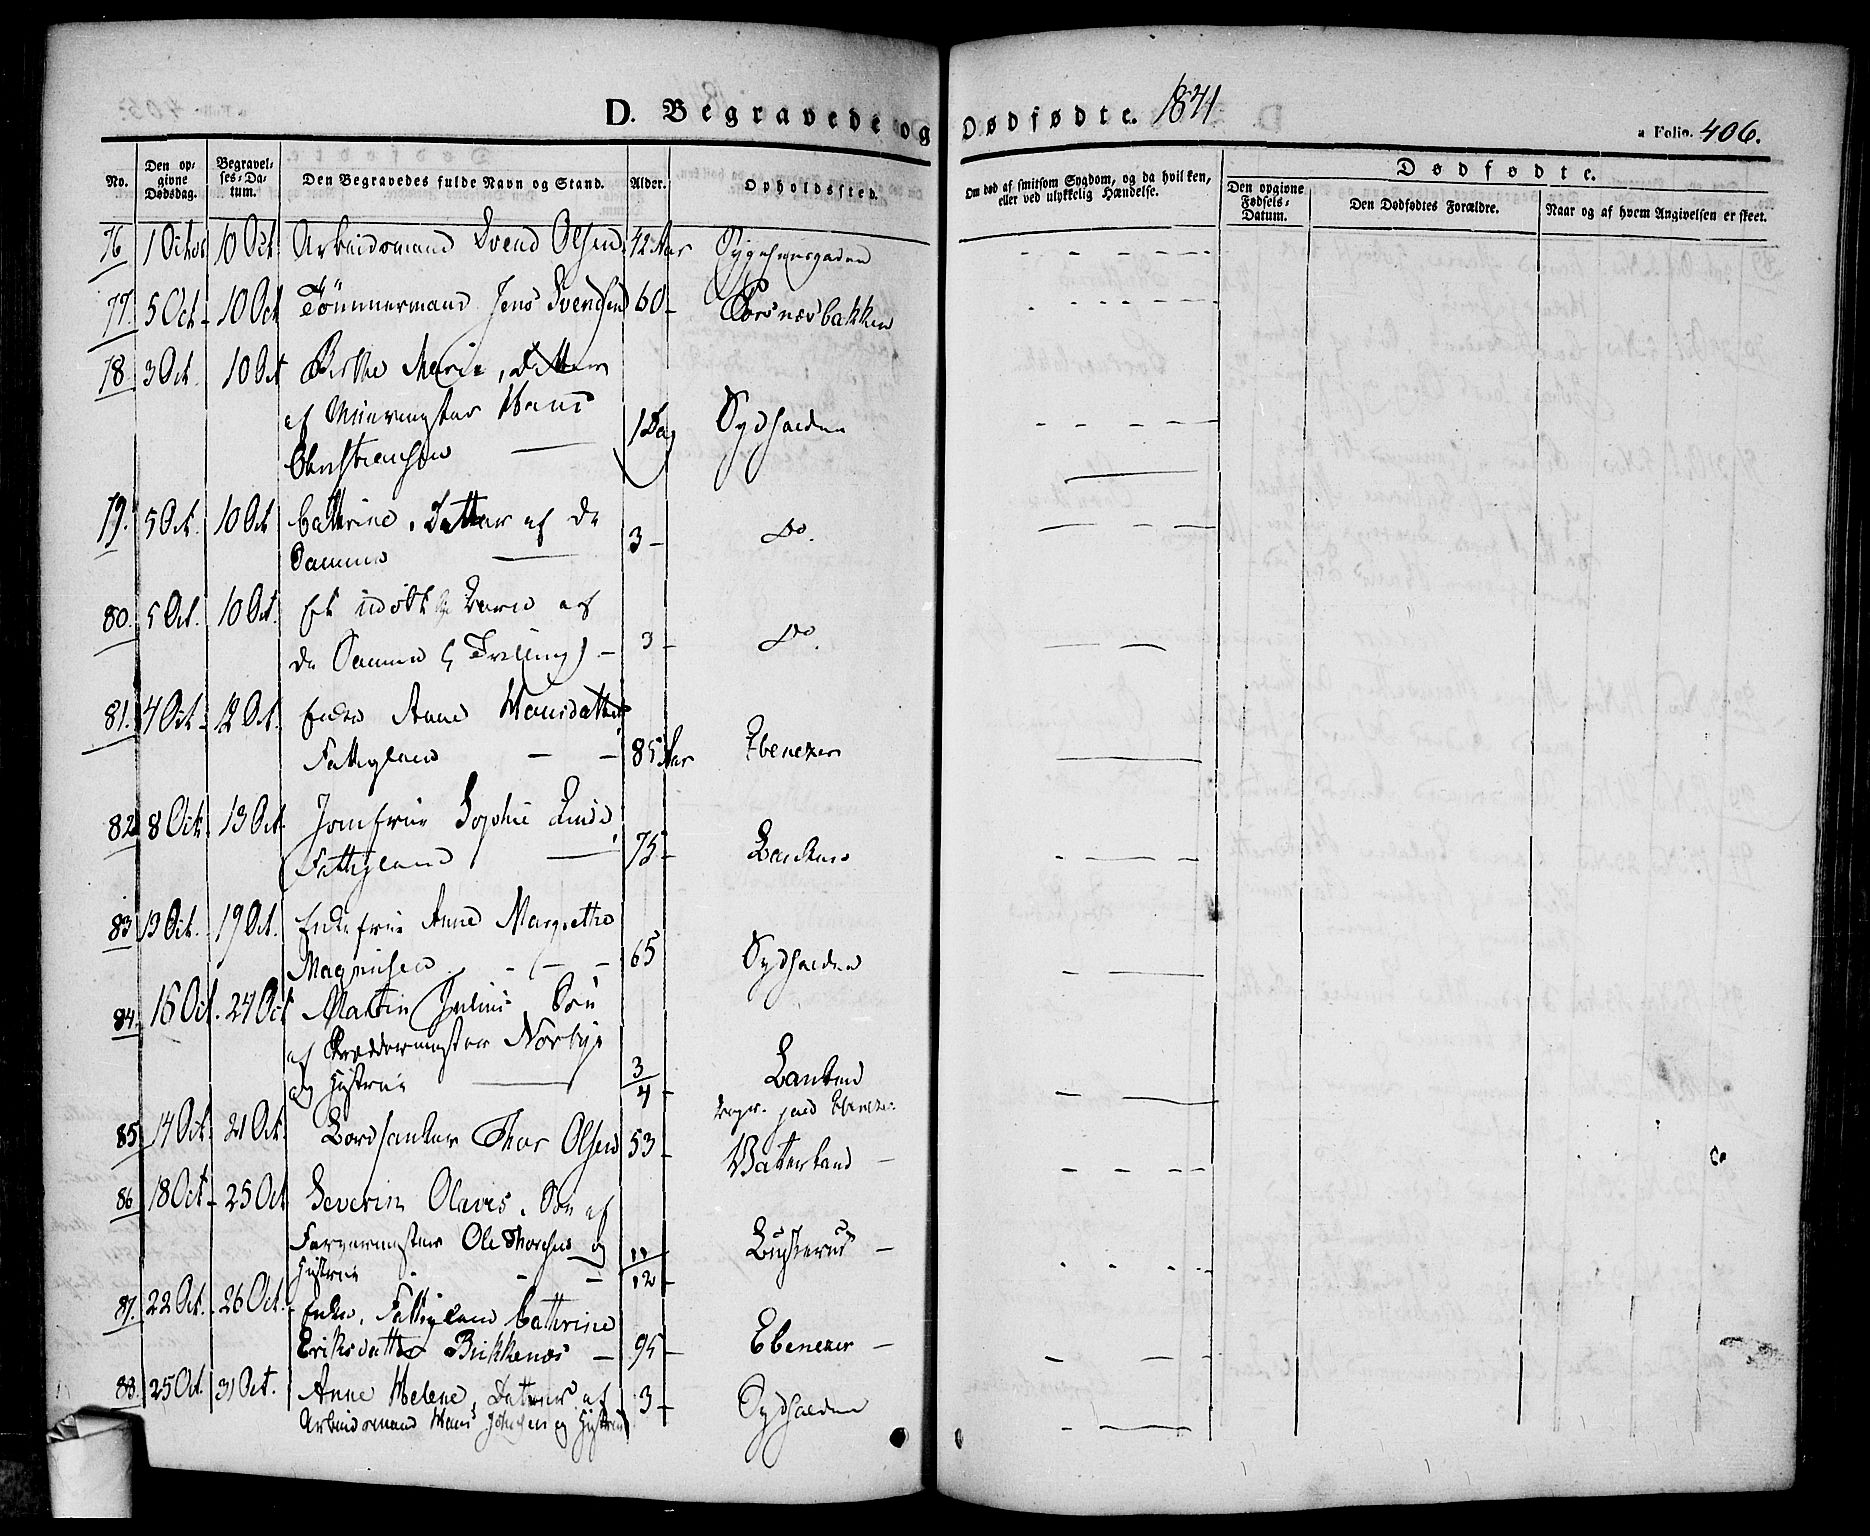 D. Begravede og Dødfødte. 1841
a Folio. 406.
No.
Den opgivne Dødsdag.
Begravelses-Datum.
Den Begravedes fulde Navn og Stand.
Alder.
Opholdssted.
Om død af smitsom Sygdom, og da hvilken, eller ved ulykkelig Hændelse.
Dødfødte.
Den opgivne Fødsels-Datum.
Den Dødfødtes Forældre.
Naar og af hvem Angivelsen er skeet.
76 1 Octob 10 Oct Arbeidsmand Svend Olsen 42 Aar
77. 5 Oct 10 Oct Tömmermand Jens Svendsen 60 - Torsnæsbakken
78 3 Oct. 10 Oct Birthe Marie, Datter
af Muurmester Hans 1 Dag Sydhalden
Christiansen
79. 5 Oct. 10 Oct Cathrine, Datter af de
Samme 3 - Do.
80. 5 Oct. 10 Oct. Et udöbt Barn af
de Samme (Trilling) - 3 - Do.
81. 4 Oct. 12 Oct. Enke Anne Hansdatter
Fattiglem 85 Aar Ebenezer
82 8 Oct. 13 Oct. Jomfrue Sophie
Fattiglem 75 - Banken
83 13 Oct. 19 Oct. Enkefrue Anne Margrethe
Magnusen 65 Sydhalden
84. 16 Oct. 24 Oct Martin Julius Sön
af Skræddermester Norbye
og Hustrue 3/4 - Banken
Begr. paa Ebenezer
85 14 Oct. 21 Oct. Bordtanker Thor Olsen 53 - Vaterland -
86 18 Oct. 25 Oct Severin Olaves, Sön af
Farvermester Ole Thoresen og 11/12 -
Hustrue
87. 22 Oct. 26 Oct. Enke, Fattiglem Cathrine
Eriksdatter Brikkenæs - 95 - Ebenezer -
88. 25 Oct. 31 Oct. Anne Helene, Datter af 3 - Sydhalden
Arbeidsmand Hans Johnsen og Hustrue